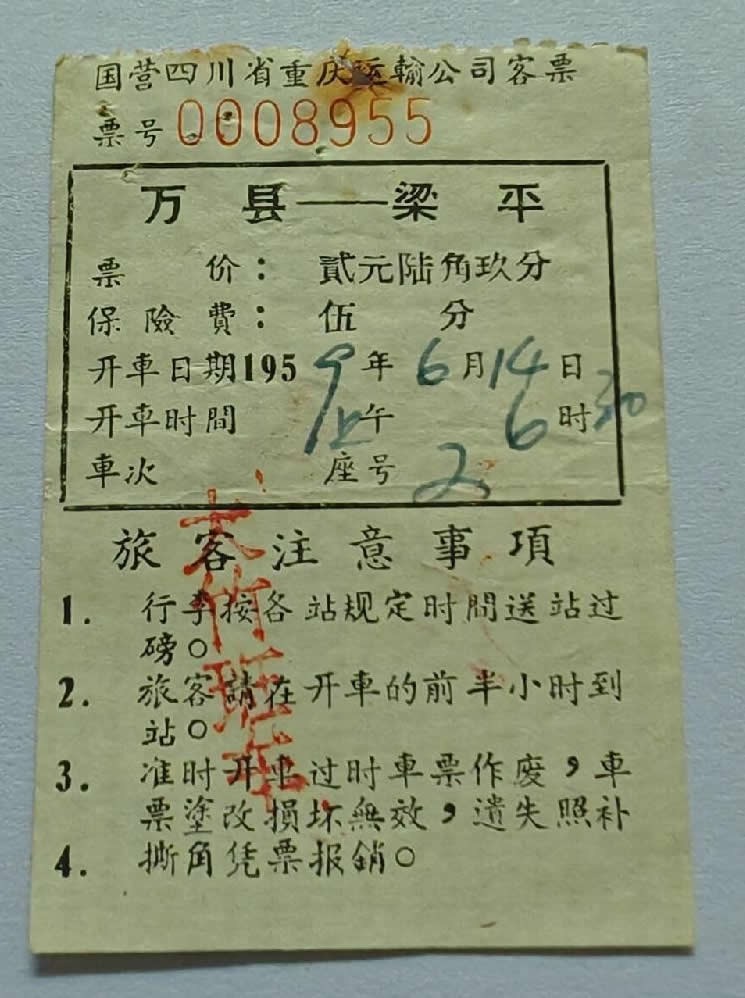 国营四川省重庆运輸公司客票
票号 0008955
万县——梁平
票价：貳元陆角玖分
保險費：伍分
开車日期1959年6月14日
开車时間 上午6时30
車次 座号 2
旅客注意事項
1. 行李按各站规定时間送站过
磅。
2. 旅客請在开車的前半小时到
站。
3. 准时开車过时車票作廢，車
票塗改損坏無效，遺失照补
4. 撕角凭票报銷。
大竹班車